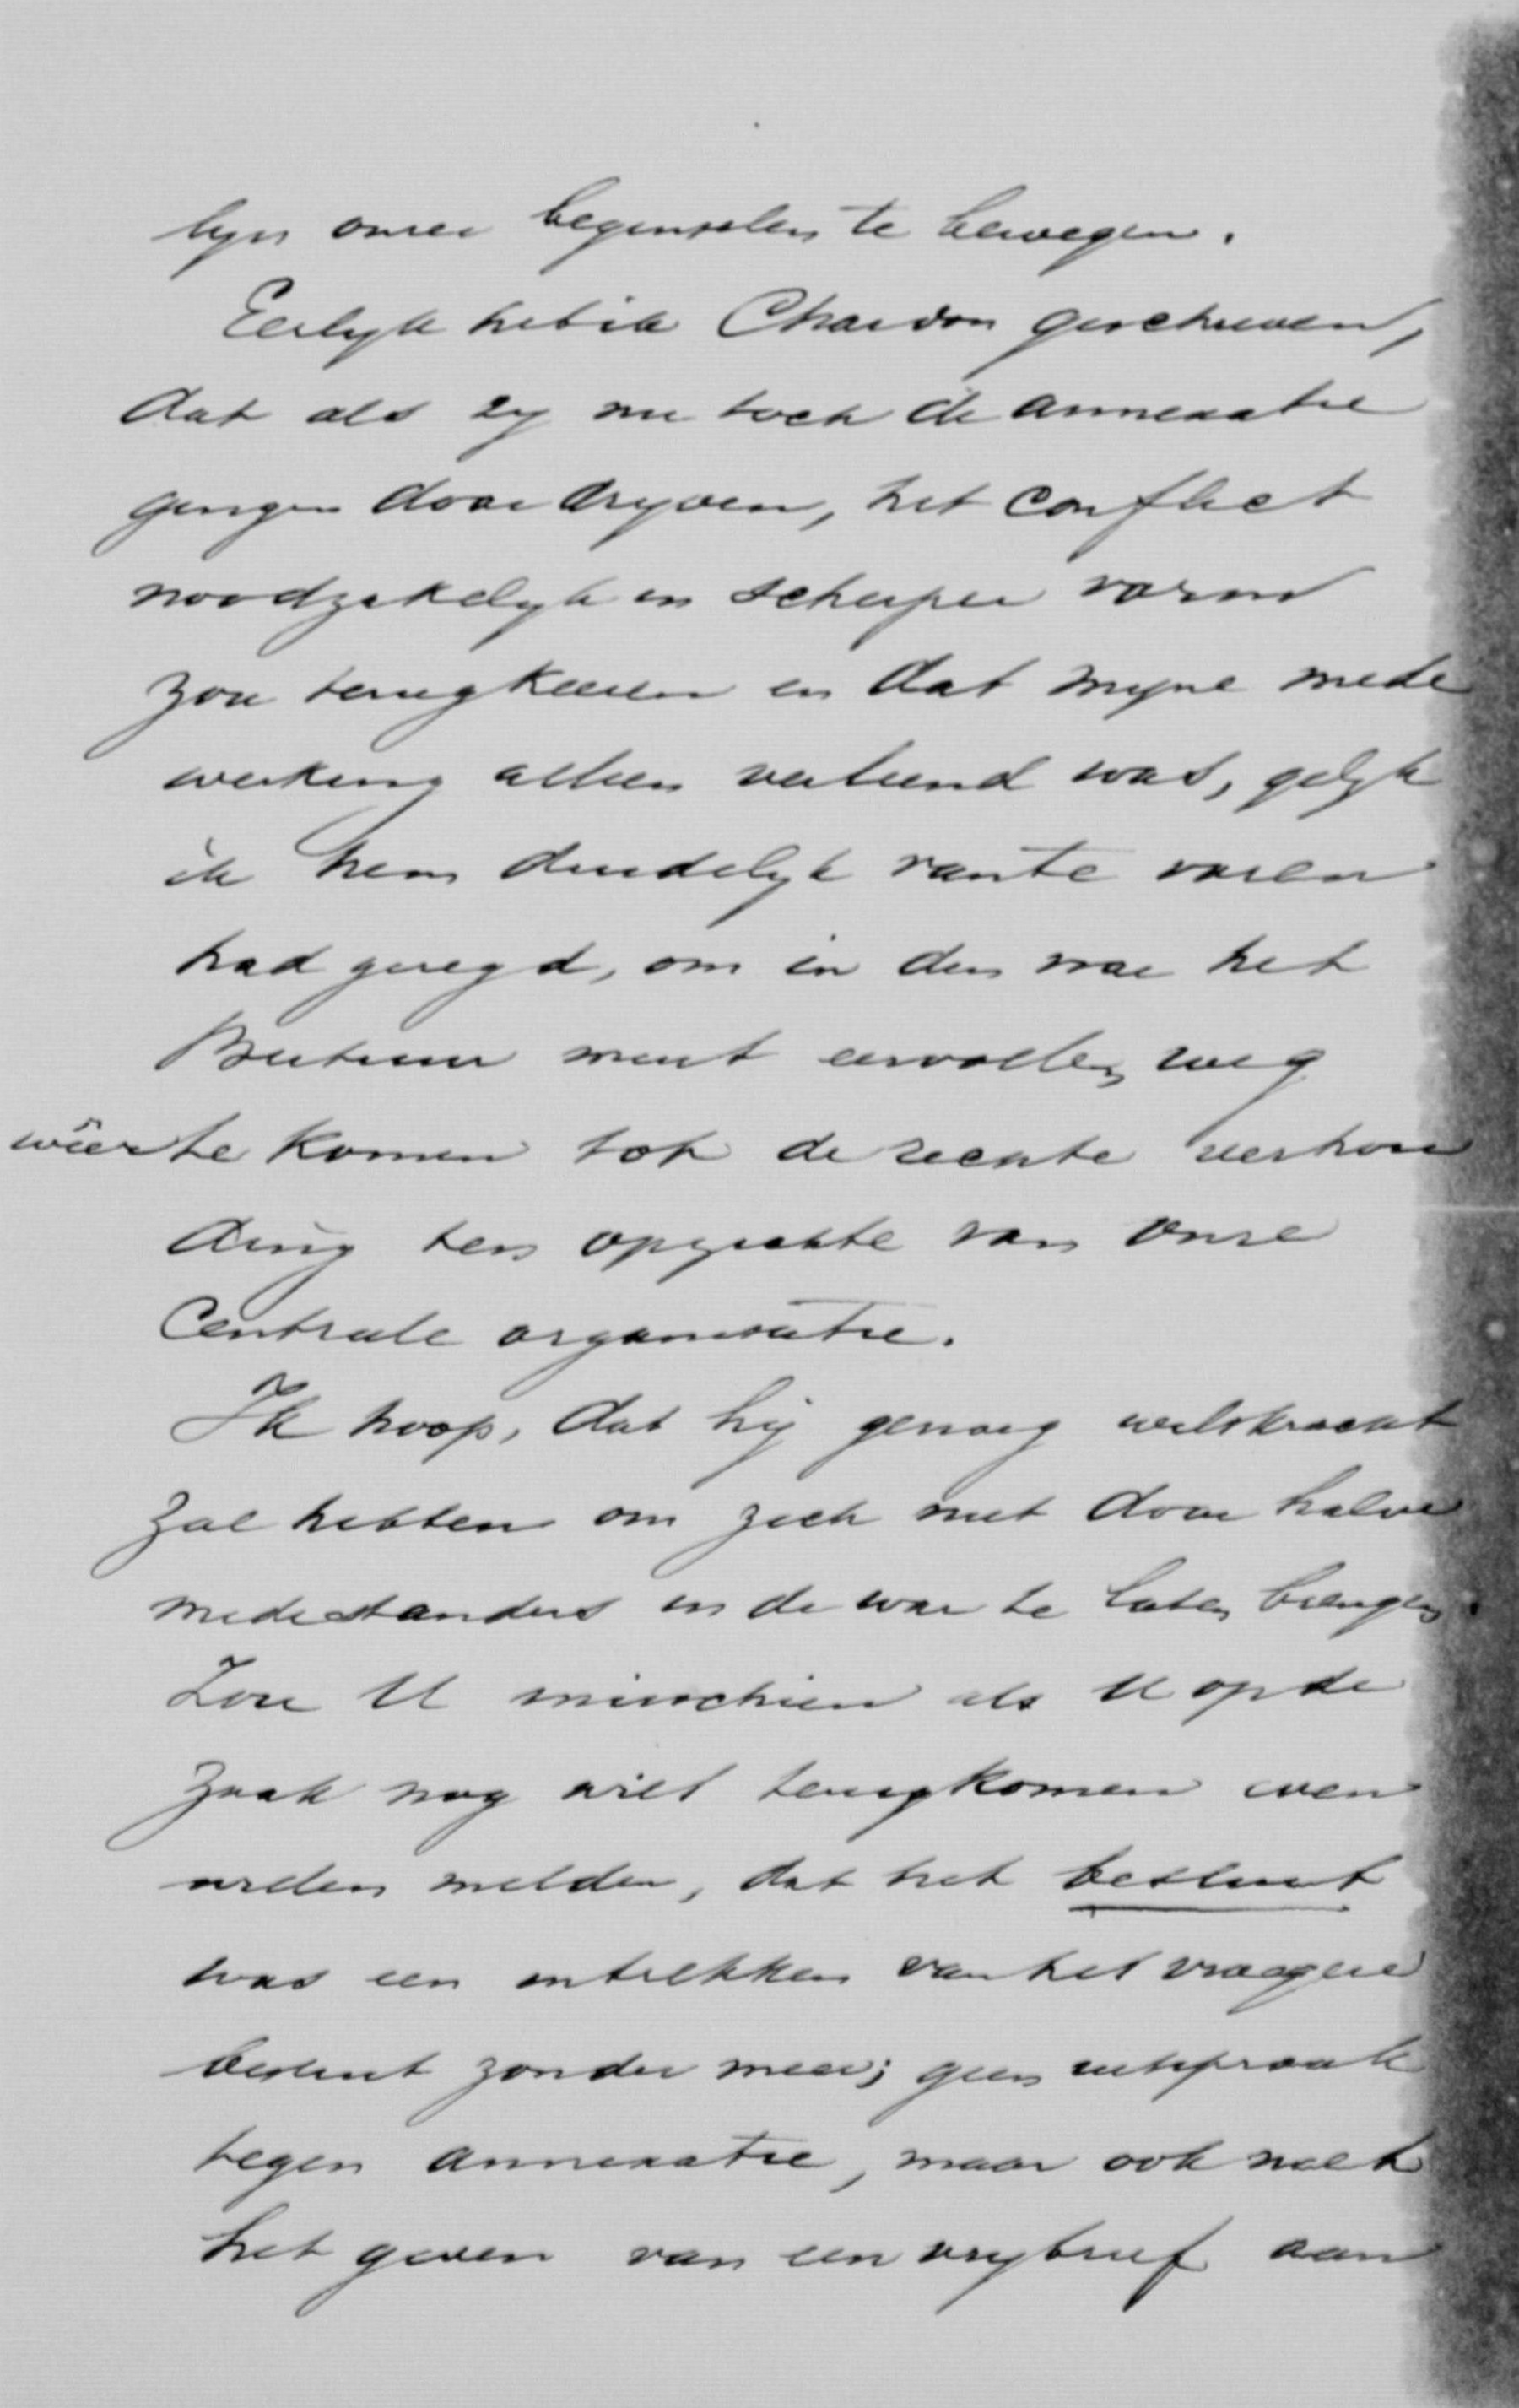 lyn onzer beginselen te bewegen.
Eerlyk heb ik Chardon geschreven,
dat als zy nu toch de annexatie
gingen doordryven, het conflict
noodzakelyk in scherper vorm
zou terugkeeren en dat myne mede
werking alleen verleend was, gelyk
ik hem duidelyk van te voren
had gezegd, om in den war het
Bestuur een eervollen weg
weer te komen tot de rechte verhou
ding ten opzichte van onze
Centrale organisatie.
Ik hoop, dat hij genoeg wilskracht
zal hebben om zich niet door halve
medestanders in de war te laten brengen.
Zou U misschien als U op de
zaak nog wilt terugkomen even
willen melden, dat het besluit
was een intrekken van het vroegere
besluit zonder meer; geen uitspraak
tegen annexatie, maar ook niet
het geven van een vrybrief aan